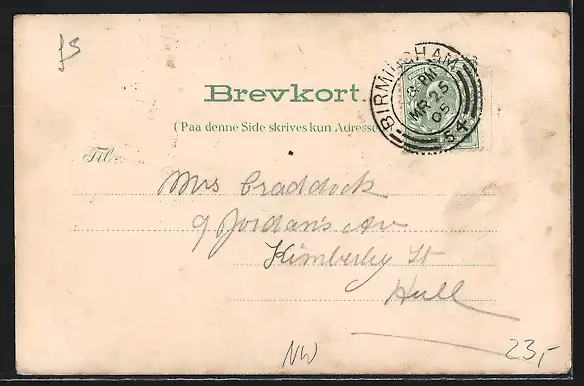 JS
Brevkort.
(Paa denne Side skrives kun Adresse
BIRMINGHAM
8-PM
MR 25
05
54
Til
Mrs Craddock
9 Jordan's Av
Kimberley St
Hull
NW
23,-